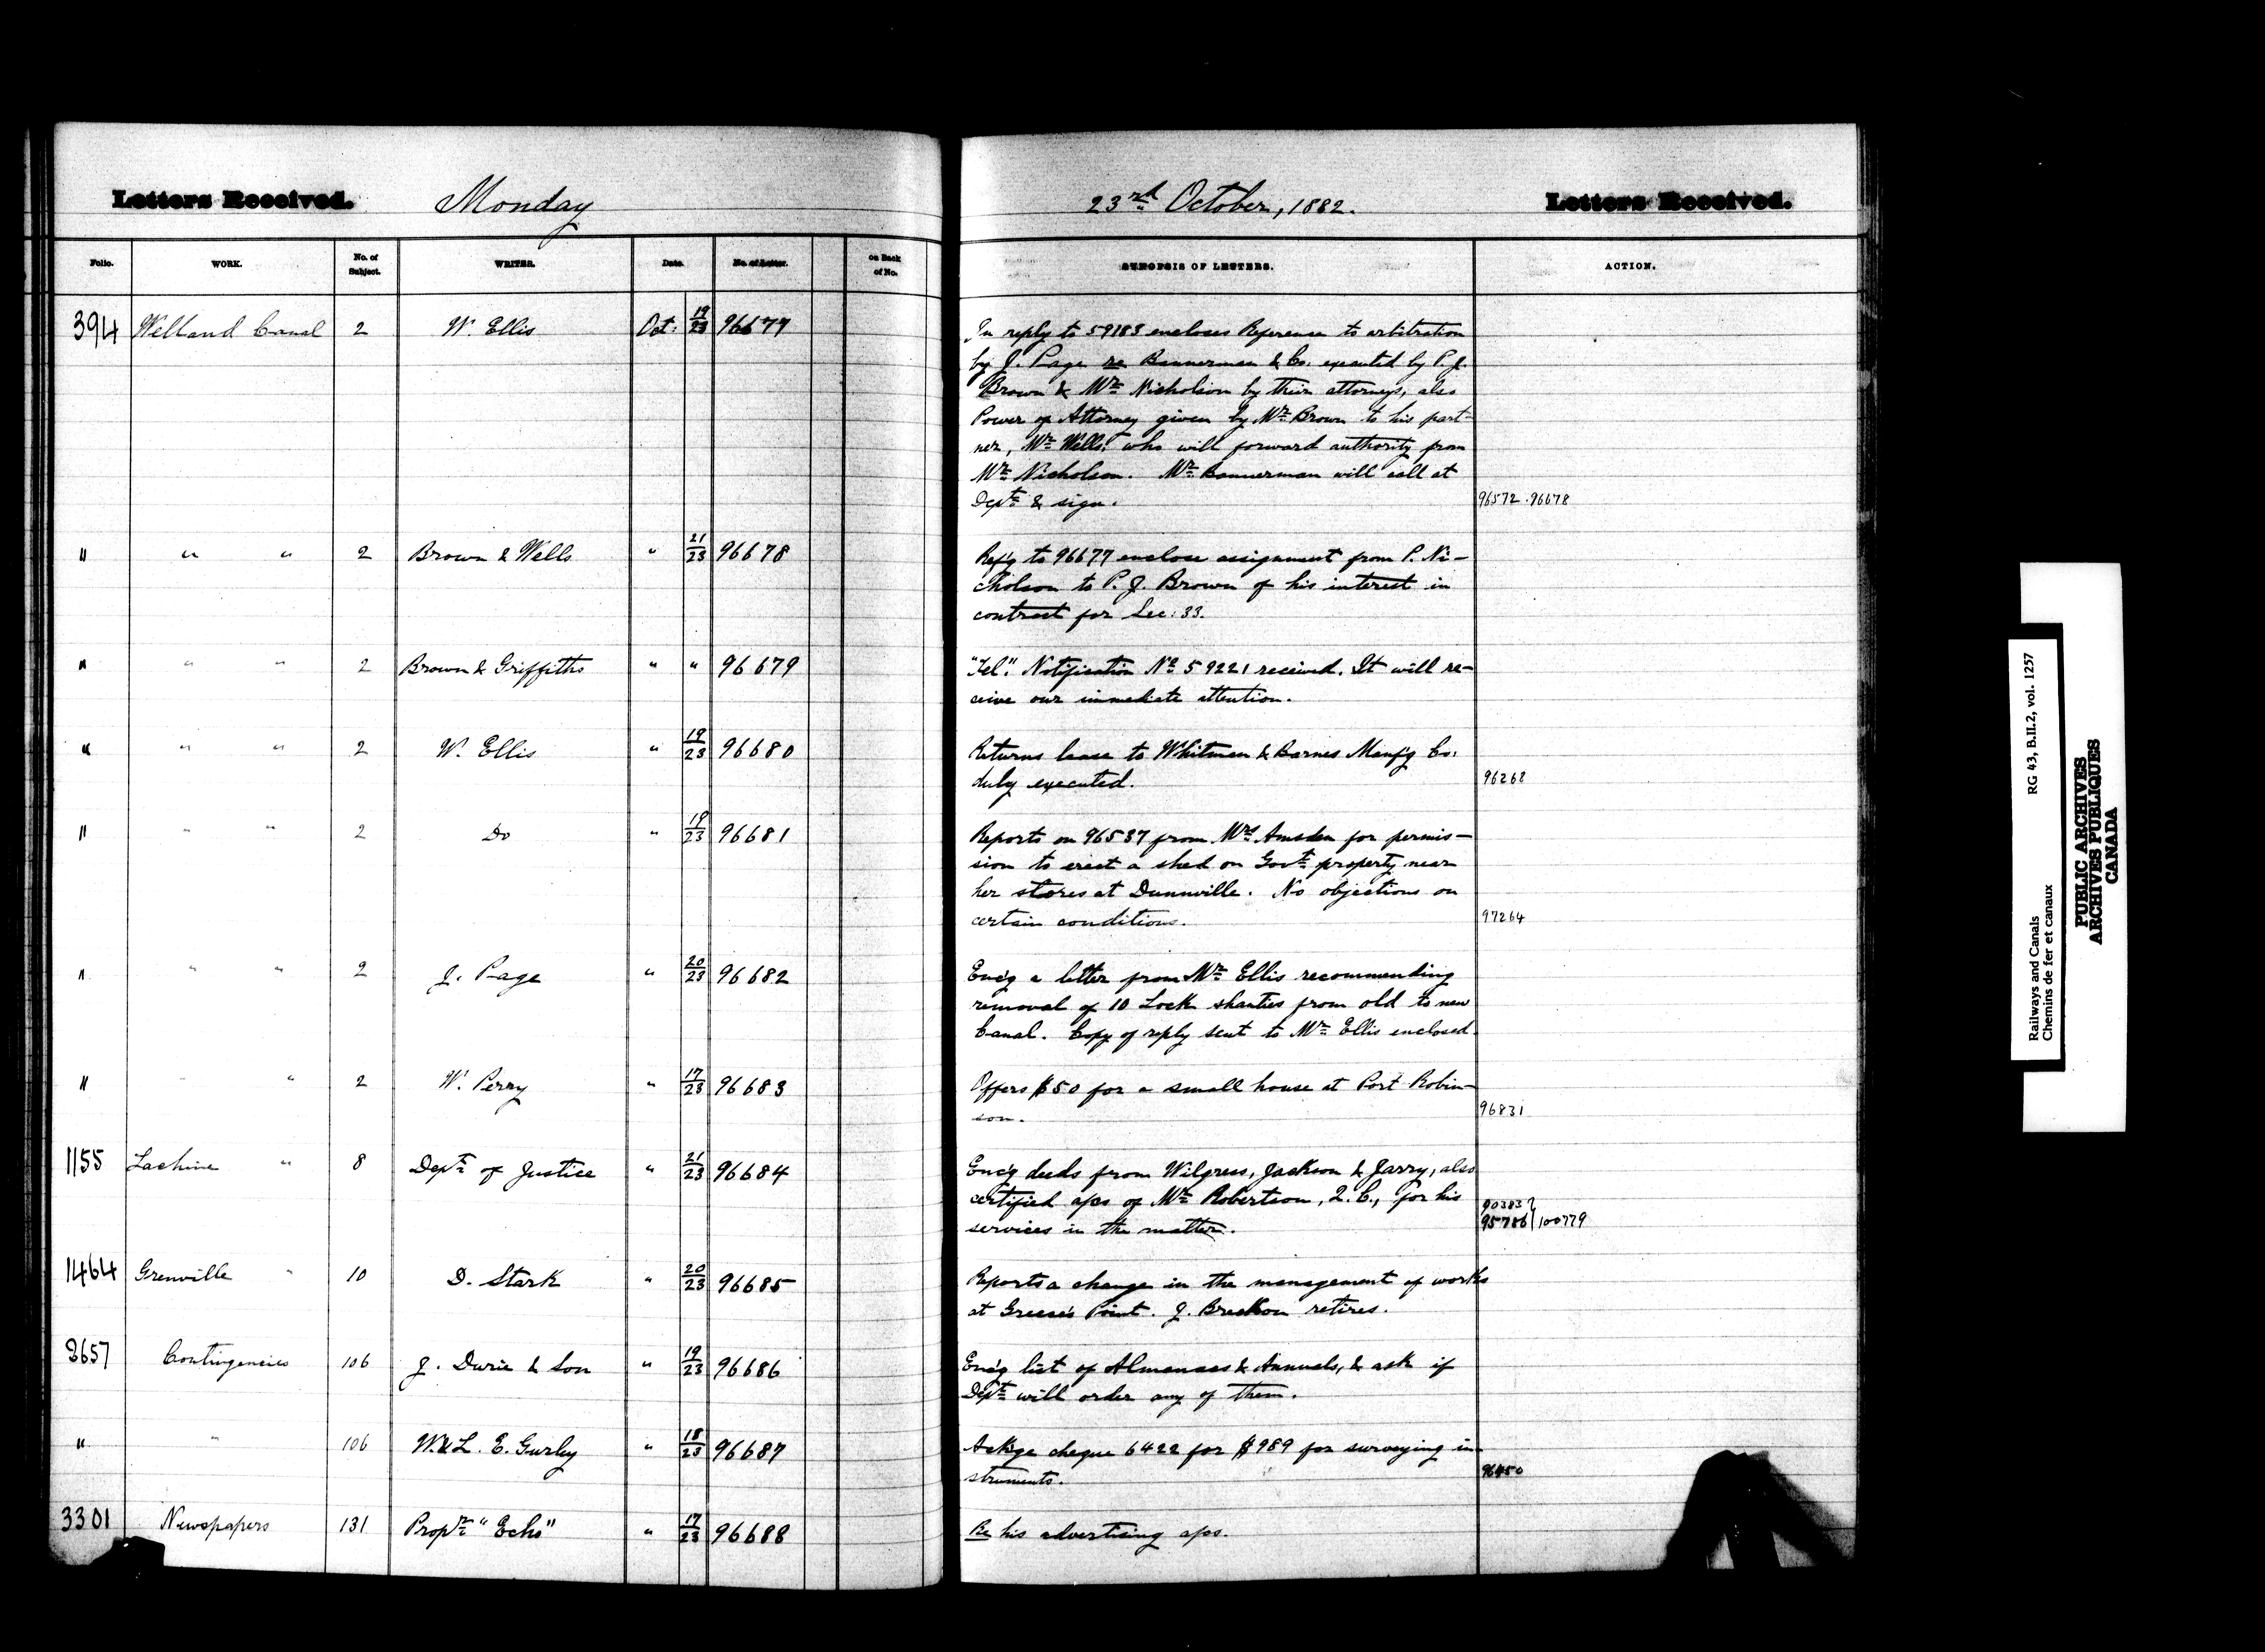 Letters Received. Monday 23rd October, 1882. Letters Received.
Folio. WORK. No. of Subject. WRITER. Date. No. of Letter. on Back of No. SYNOPSIS OF LETTERS. ACTION.
394 Welland Canal 2 W. Ellis Oct: 19/23 96677 In reply to 59183 encloses Reference to arbitration
by J. Page re Bannerman & Co. executed by P. J.
Brown & Mr Nicholson by their attorneys, also
Power of Attorney given by Mr Brown to his part-
ner, Mr Wells, who will forward authority from
Mr Nicholson. Mr Bannerman will call at
Dept & sign. 96572 . 96678
" " " 2 Brown & Wells " 21/23 96678 Ref'g to 96677 enclose assignment from P. Ni-
cholson to P. J. Brown of his interest in
contract for Sec: 33.
" " " 2 Brown & Griffiths " " 96679 "Tel". Notification No 59221 received. It will re-
ceive our immediate attention.
" " " 2 W. Ellis " 19/23 96680 Returns lease to Whitman & Barnes Manf'g Co:
duly executed. 96268
" " " 2 Do " 19/23 96681 Reports on 96537 from Mrs Amsden for permis-
sion to erect a shed on Govt property near
her stores at Dunnville. No objections on
certain conditions. 97264
" " " 2 J. Page " 20/23 96682 Enc'g a letter from Mr Ellis recommending
removal of 10 Lock shanties from old to new
Canal. Copy of reply sent to Mr Ellis enclosed.
" " " 2 W. Perry " 17/23 96683 Offers $50 for a small house at Port Robin-
son. 96831
1155 Lachine " 8 Dept of Justice " 21/23 96684 Enc'g deeds from Wilgress, Jackson & Jarry, also
certified a/cs of Mr Robertson, Q.C., for his 90383
services in the matter. 95786 100779
1464 Grenville " 10 D. Stark " 20/23 96685 Reports a change in the management of works
at Greece's Point. J. Breckon retires.
3657 Contingencies 106 J. Durie & Son " 19/23 96686 Enc'g list of Almanacs & Annuals, & ask if
Dept will order any of them.
" " 106 W. & L. E. Gurley " 18/23 96687 Ackge cheque 6422 for $989 for surveying in-
struments. 96450
3301 Newspapers 131 Propr "Echo" " 17/23 96688 Re his advertising a/cs.
Railways and Canals RG 43, B.II.2, vol. 1257
Chemins de fer et canaux
PUBLIC ARCHIVES
ARCHIVES PUBLIQUES
CANADA